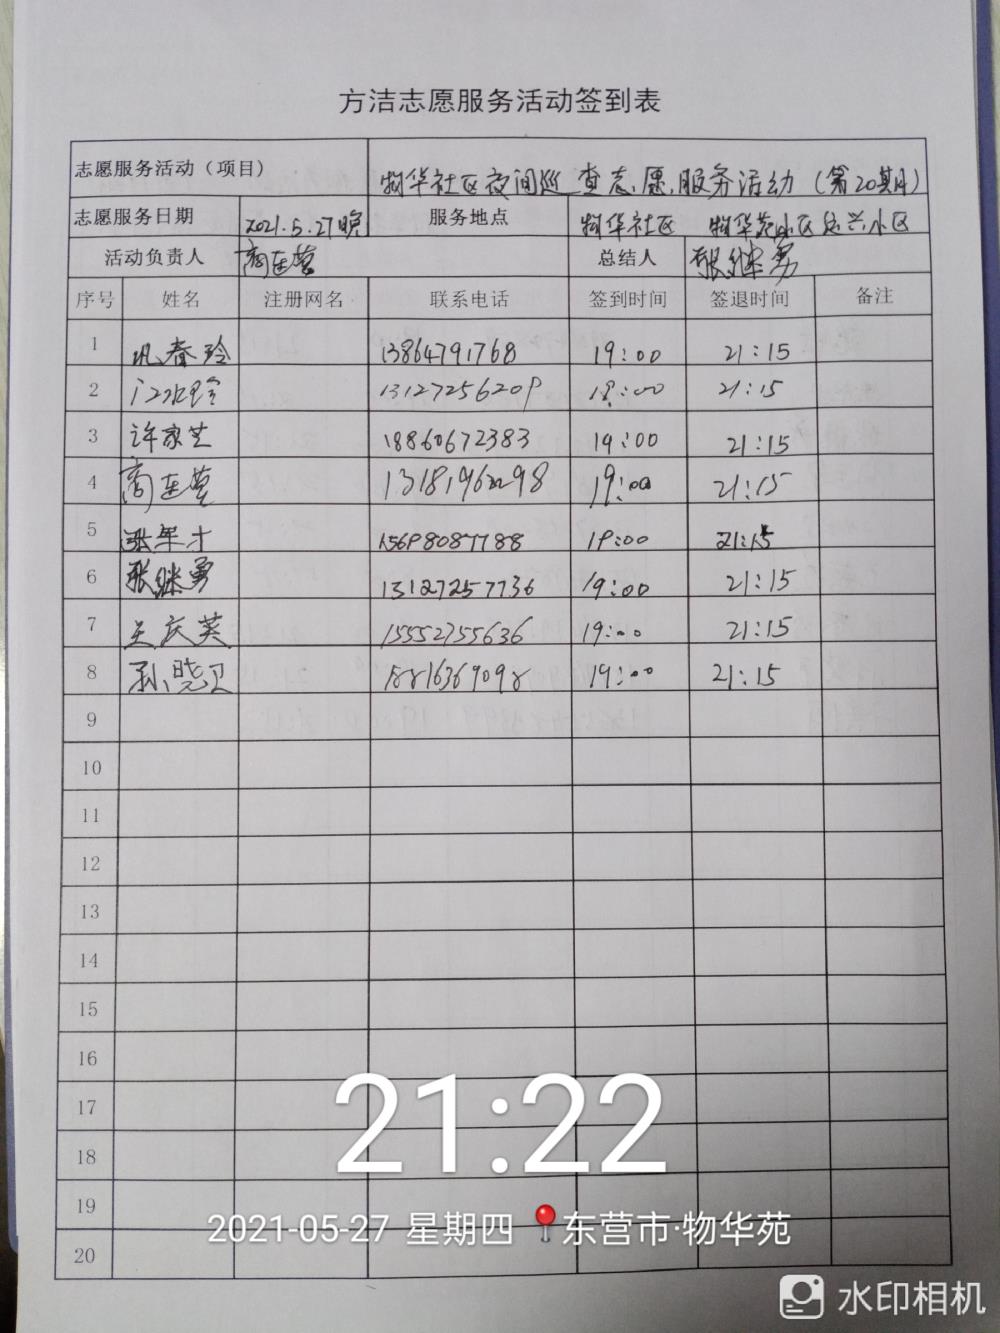 方洁志愿服务活动签到表
志愿服务活动（项目） 物华社区夜间巡查志愿服务活动（第20期）
志愿服务日期 2021.5.27晚 服务地点 物华社区 物华苑小区 小区
活动负责人 商连营 总结人 张继勇
序号 姓名 注册网名 联系电话 签到时间 签退时间 备注
1 春玲 13864791768 19:00 21:15
2 13127256209 19:00 21:15
3 许家芝 18860672383 19:00 21:15
4 商连营 19:00 21:15
5 张年才 15698087788 19:00 21:15
6 张继勇 13127257736 19:00 21:15
7 王庆英 15552755636 19:00 21:15
8 孙晓卫 19:00 21:15
9
10
11
12
13
14
15
16
17
18
19
20
21:22
2021-05-27 星期四 东营市·物华苑
水印相机